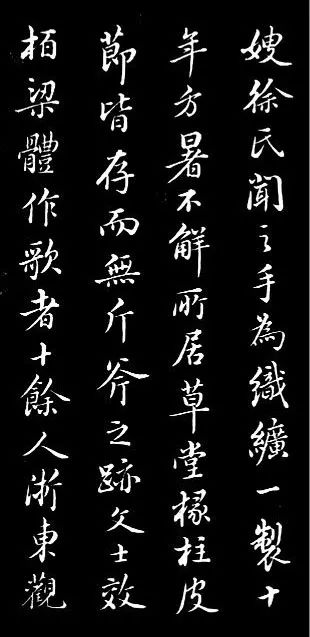 嫂徐氏聞之手為織纊一製十
年方暑不解所居草堂椽柱皮
節皆存而無斤斧之跡文士效
栢梁體作歌者十餘人浙東觀